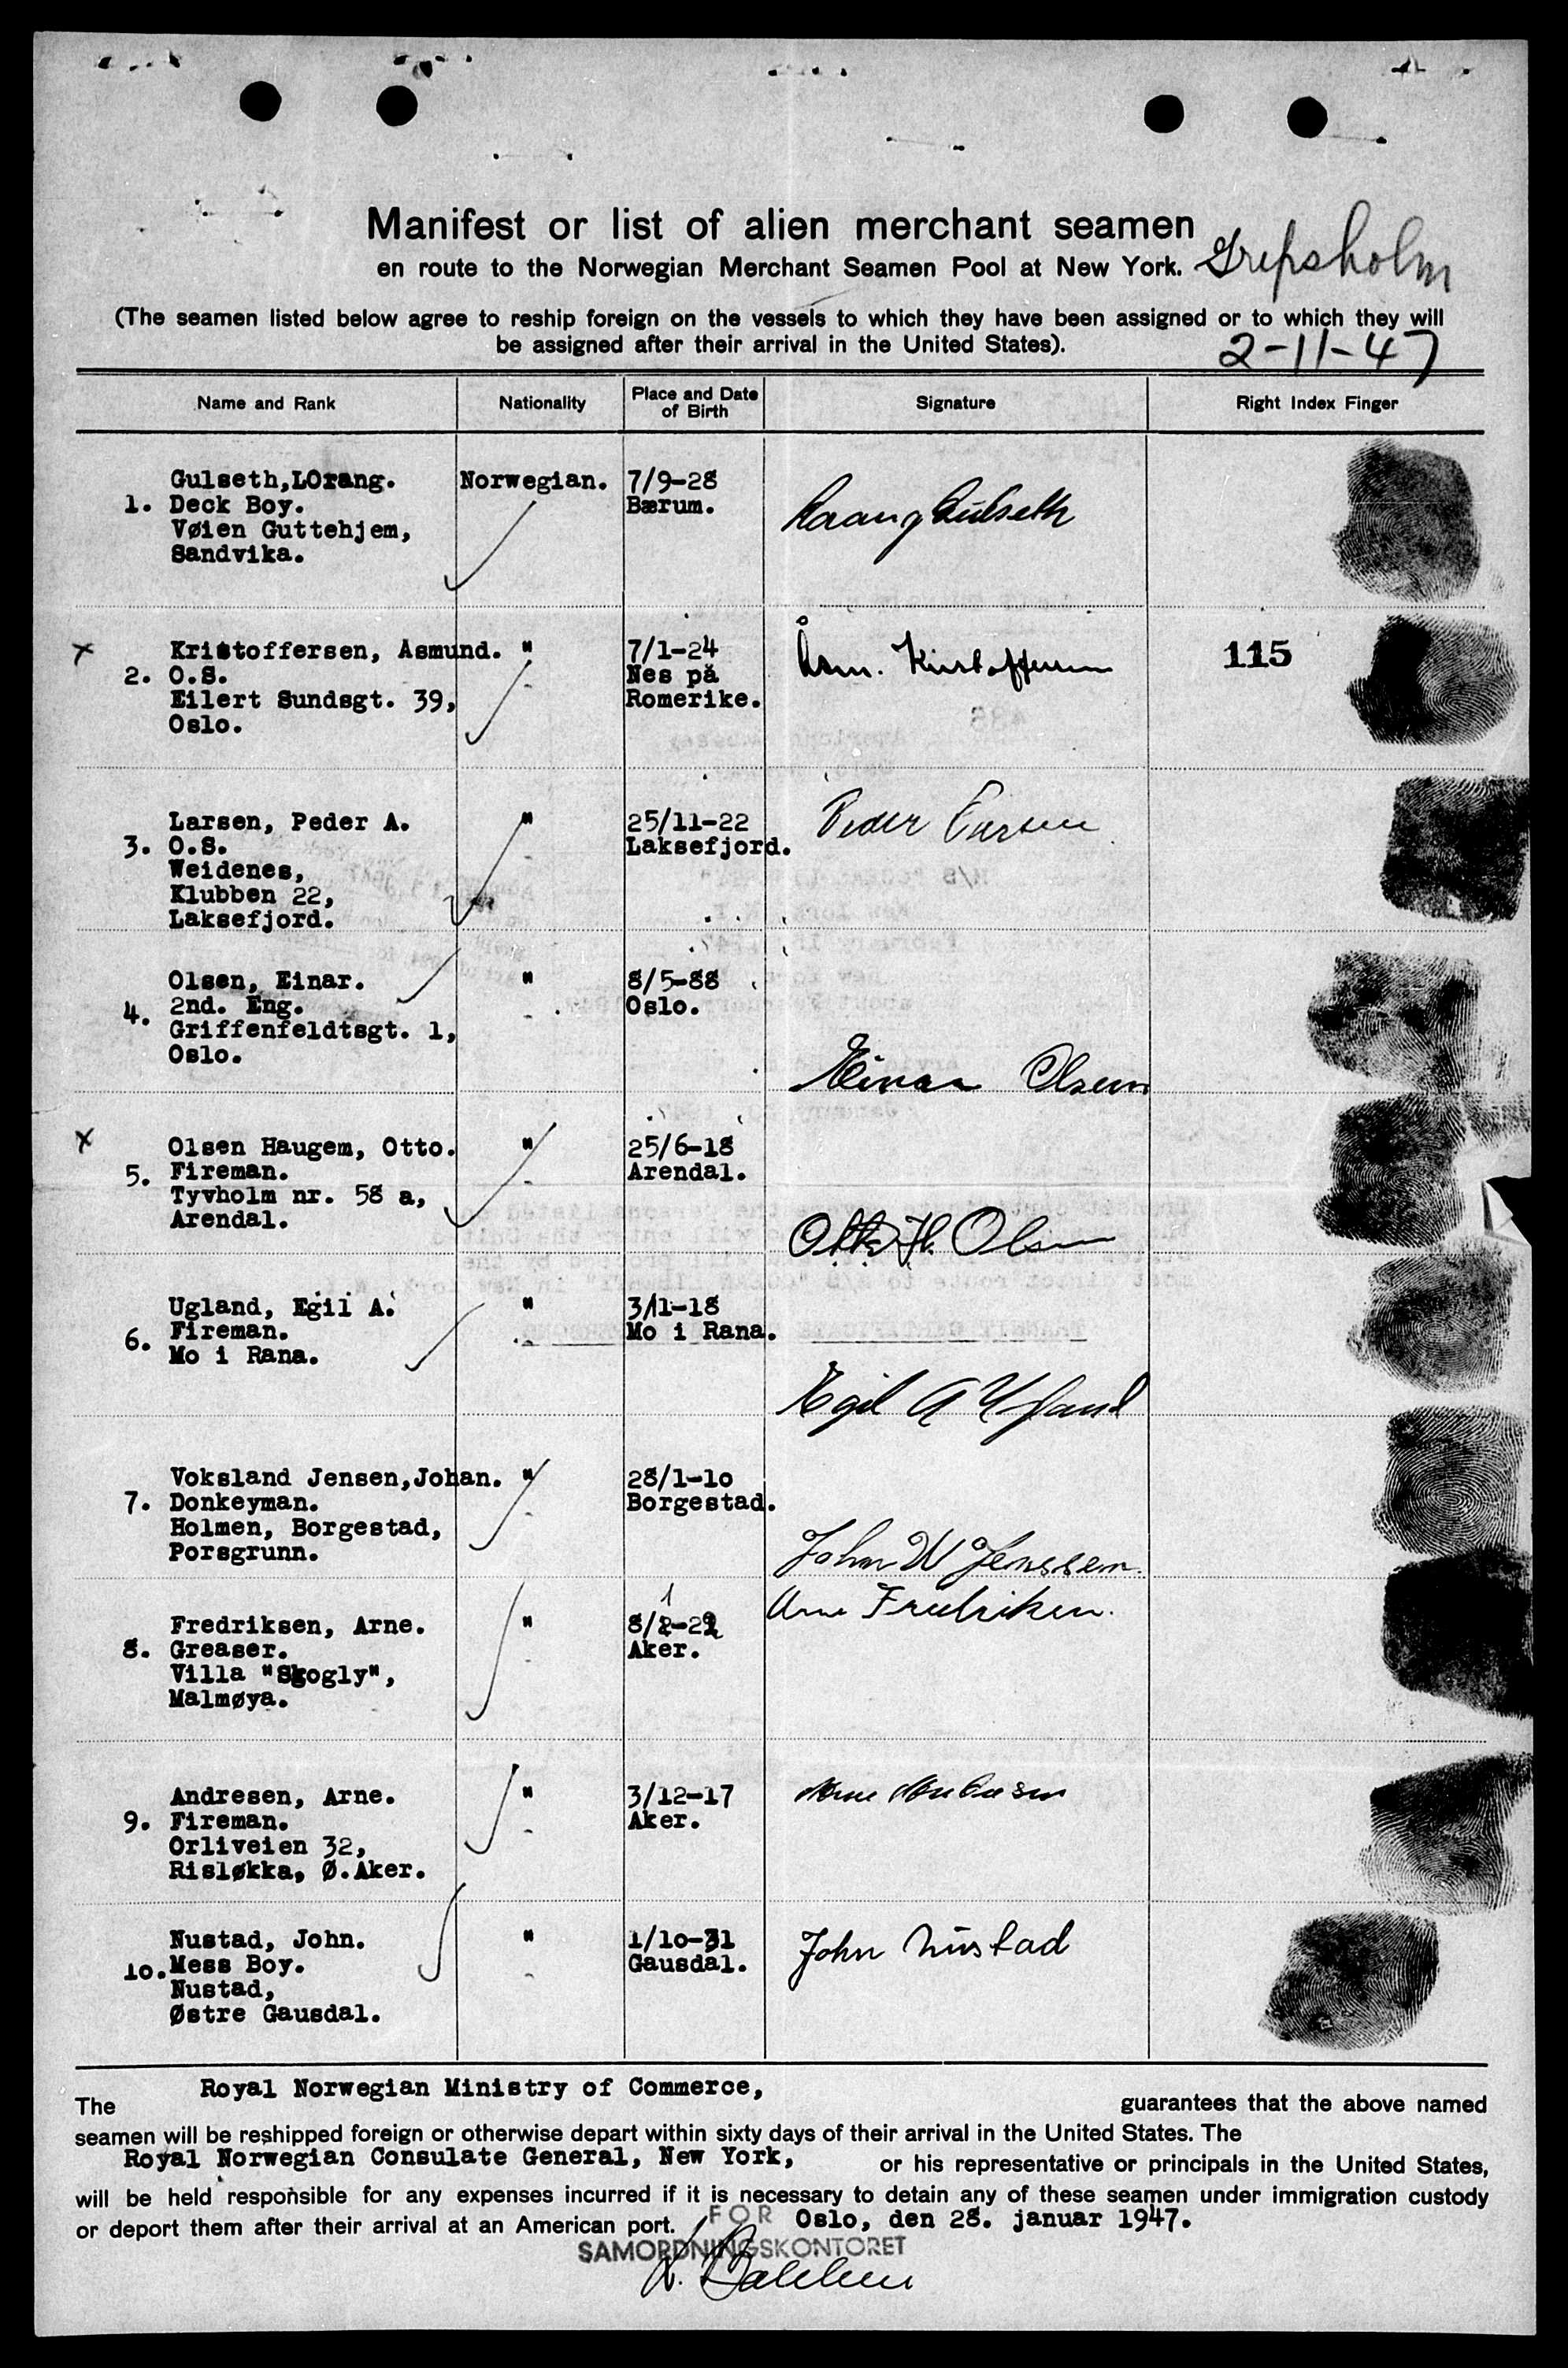 Manifest or list of alien merchant seamen
en route to the Norwegian Merchant Seamen Pool at New York.
Gripsholm
(The seamen listed below agree to reship foreign on the vessels to which they have been assigned or to which they will
be assigned after their arrival in the United States).
2-11-47
Name and Rank Nationality Place and Date of Birth Signature Right Index Finger
Gulseth,LOrang. Norwegian. 7/9-28
1. Deck Boy. Bærum.
Vøien Guttehjem,
Sandvika.
Loang Gulseth
x Kristoffersen, Asmund. " 7/1-24
2. O.S. Nes på
Eilert Sundsgt. 39, Romerike.
Oslo.
Åsm. Kristoffersen
115
Larsen, Peder A. " 25/11-22
3. O.S. Laksefjord.
Weidenes,
Klubben 22,
Laksefjord.
Peder Larsen
Olsen, Einar. " 8/5-88
4. 2nd. Eng. Oslo.
Griffenfeldtsgt. 1,
Oslo.
Einar Olsen
x Olsen Haugem, Otto. " 25/6-18
5. Fireman. Arendal.
Tyvholm nr. 58 a,
Arendal.
Otto H. Olsen
Ugland, Egil A. " 3/11-18
6. Fireman. Mo i Rana.
Mo i Rana.
Egil A Ugland
Voksland Jensen,Johan. " 28/1-10
7. Donkeyman. Borgestad.
Holmen, Borgestad,
Porsgrunn.
John W Jenssen.
Fredriksen, Arne. " 8/1-22
8. Greaser. Aker.
Villa "Skogly",
Malmøya.
Arne Fredriksen.
Andresen, Arne. " 3/12-17
9. Fireman. Aker.
Orliveien 32,
Risløkka, Ø.Aker.
Arne Andresen
Nustad, John. " 1/10-31
10. Mess Boy. Gausdal.
Nustad,
Østre Gausdal.
John Nustad
The Royal Norwegian Ministry of Commerce, guarantees that the above named
seamen will be reshipped foreign or otherwise depart within sixty days of their arrival in the United States. The
Royal Norwegian Consulate General, New York, or his representative or principals in the United States,
will be held responsible for any expenses incurred if it is necessary to detain any of these seamen under immigration custody
or deport them after their arrival at an American port. FOR Oslo, den 28. januar 1947.
SAMORDNINGSKONTORET